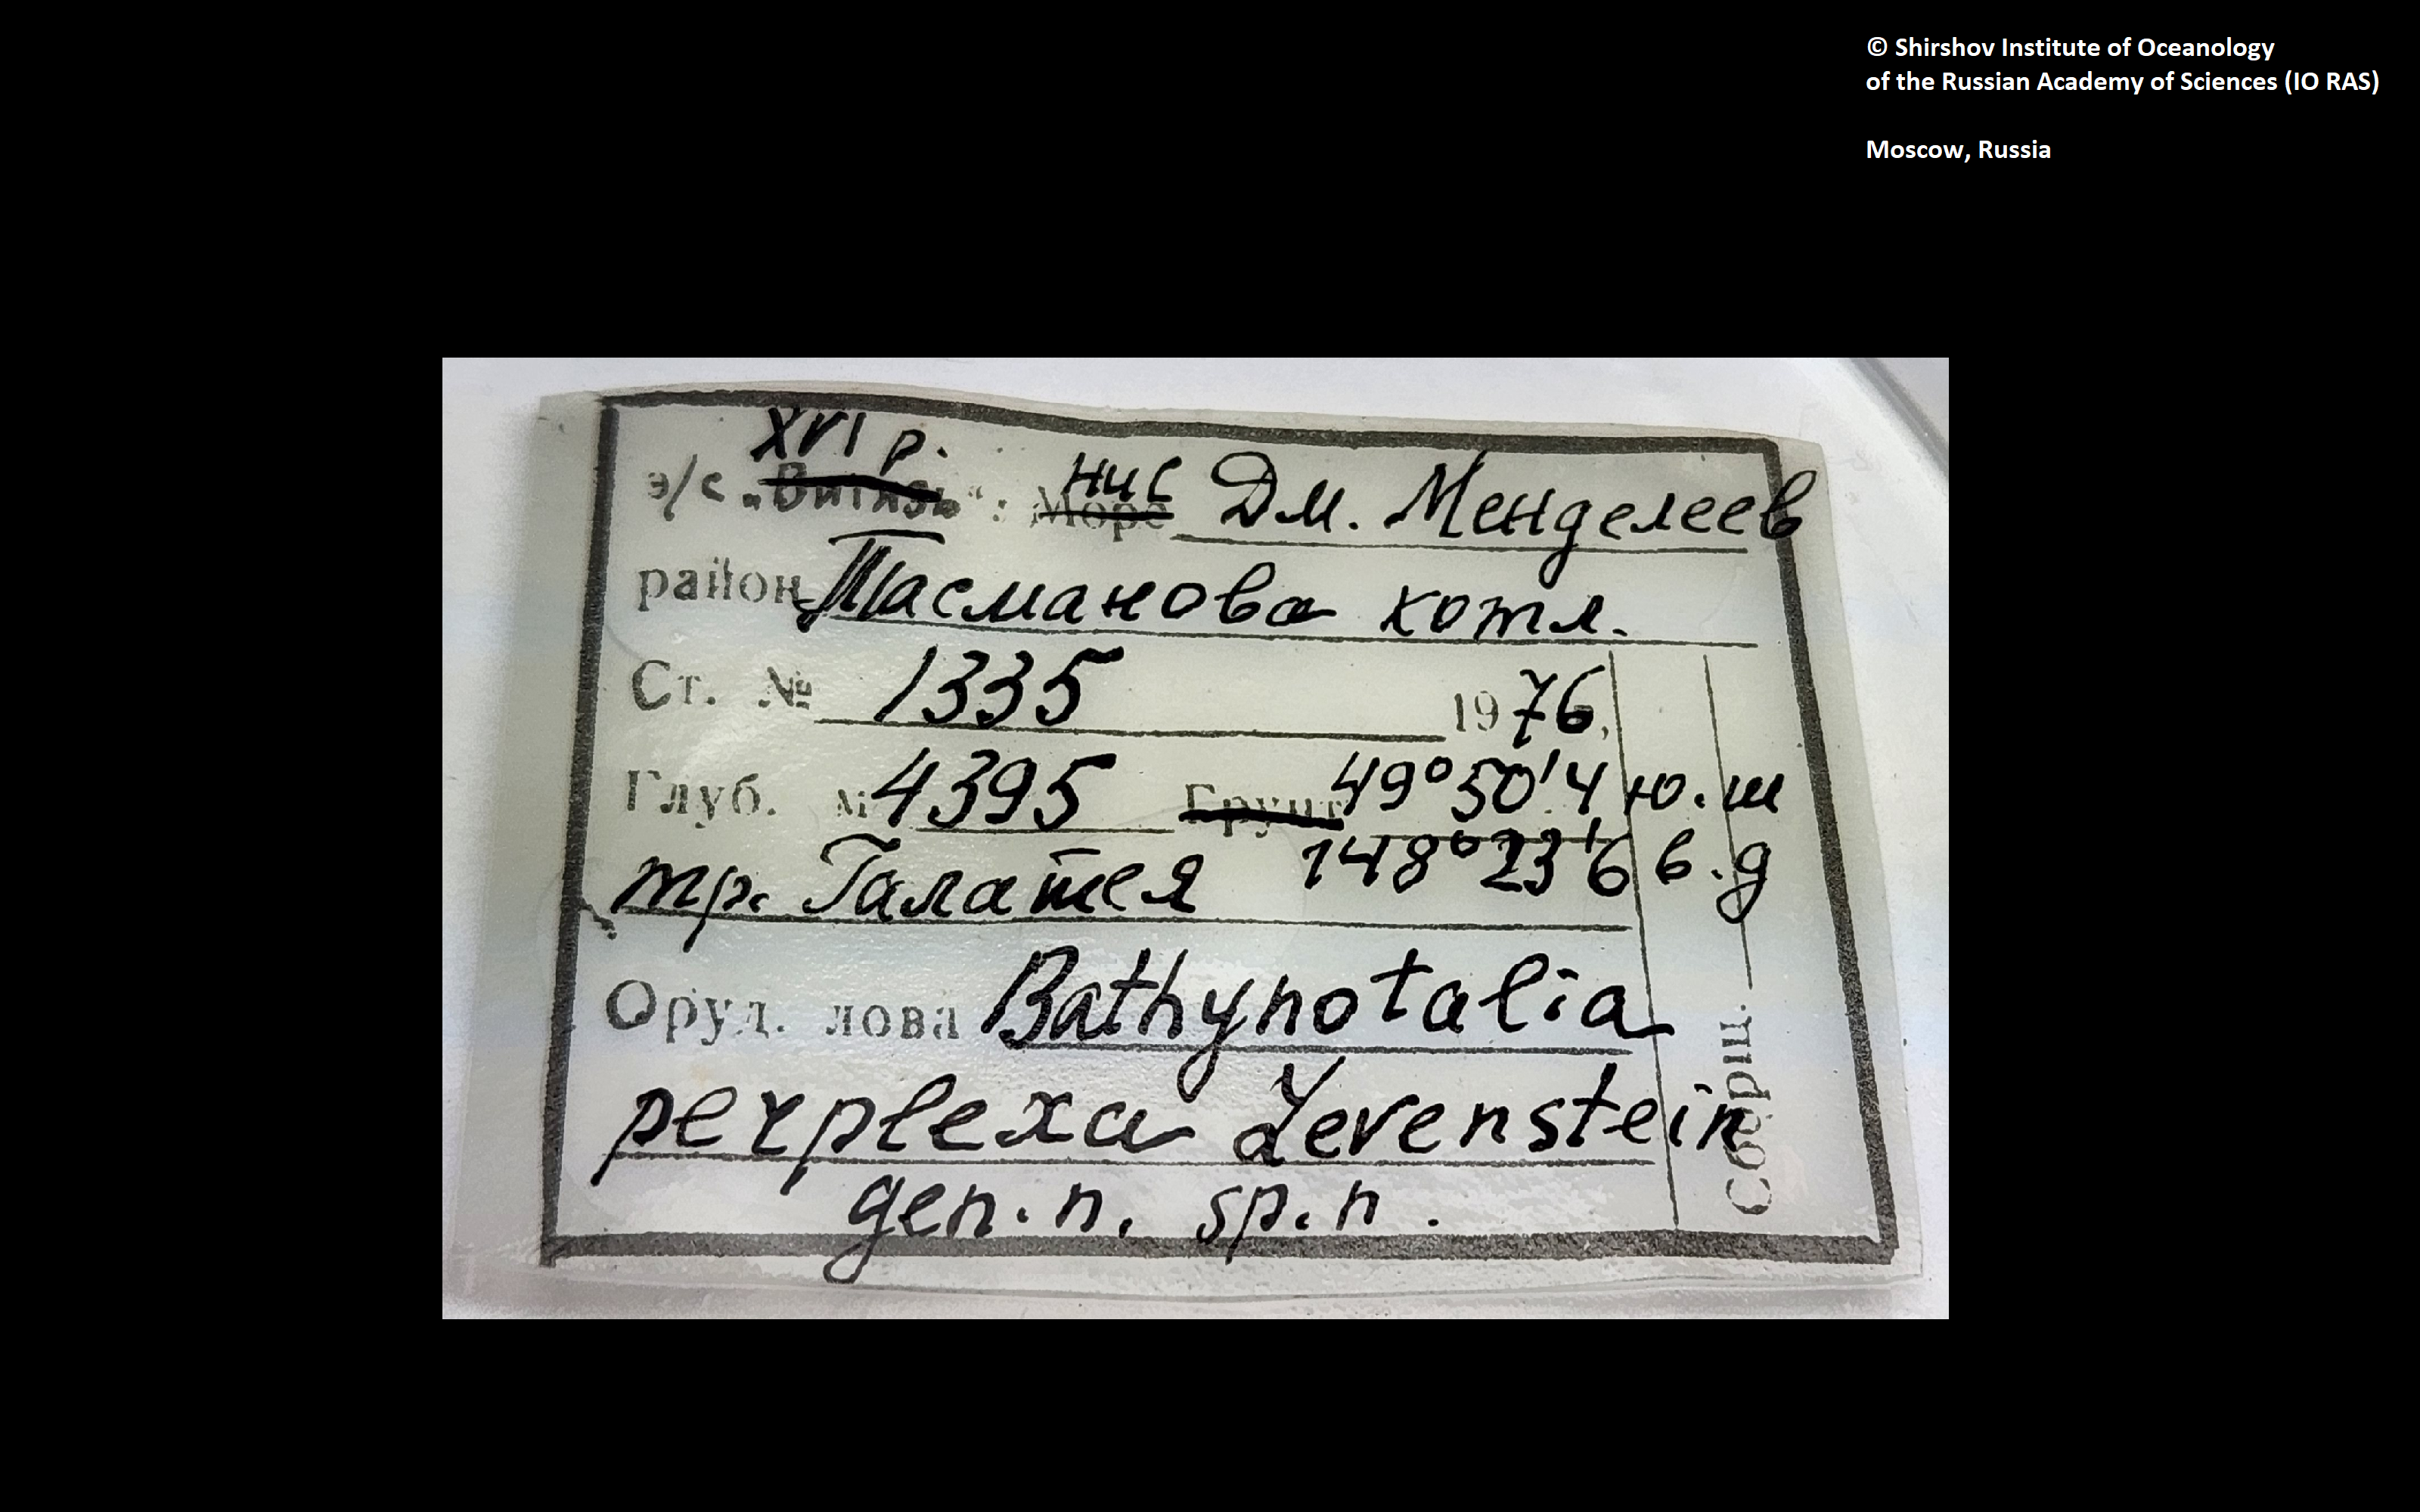 © Shirshov Institute of Oceanology
of the Russian Academy of Sciences (IO RAS)
Moscow, Russia
XVI р.
э/с „Витязь“: Море нис Дм. Менделеев
район Тасманова котл.
Ст. № 1335 1976,
Глуб. м 4395 Грунт 49°50'4 ю.ш
тр. Галатея 148°23'6 в.д
Оруд. лова Bathynotalia
perplexa Levenstein
gen. n. sp. n.
Сборщ.